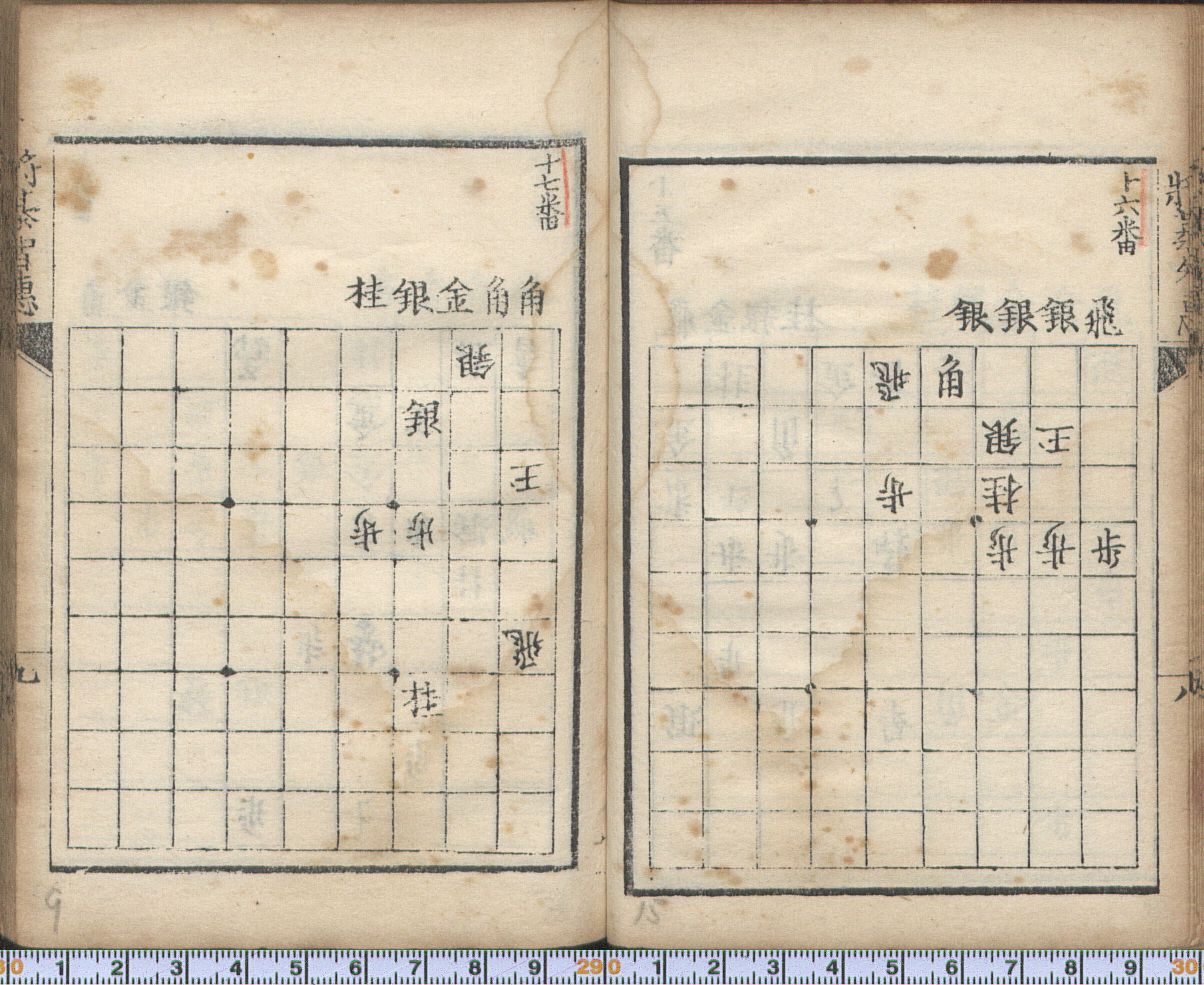 十六番
飛銀銀銀
飛角
銀王
歩桂
歩歩歩
八
十七番
角角金銀桂
銀
銀
王
歩歩
飛
桂
九
15
9
30 1 2 3 4 5 6 7 8 9 290 1 2 3 4 5 6 7 8 9 30